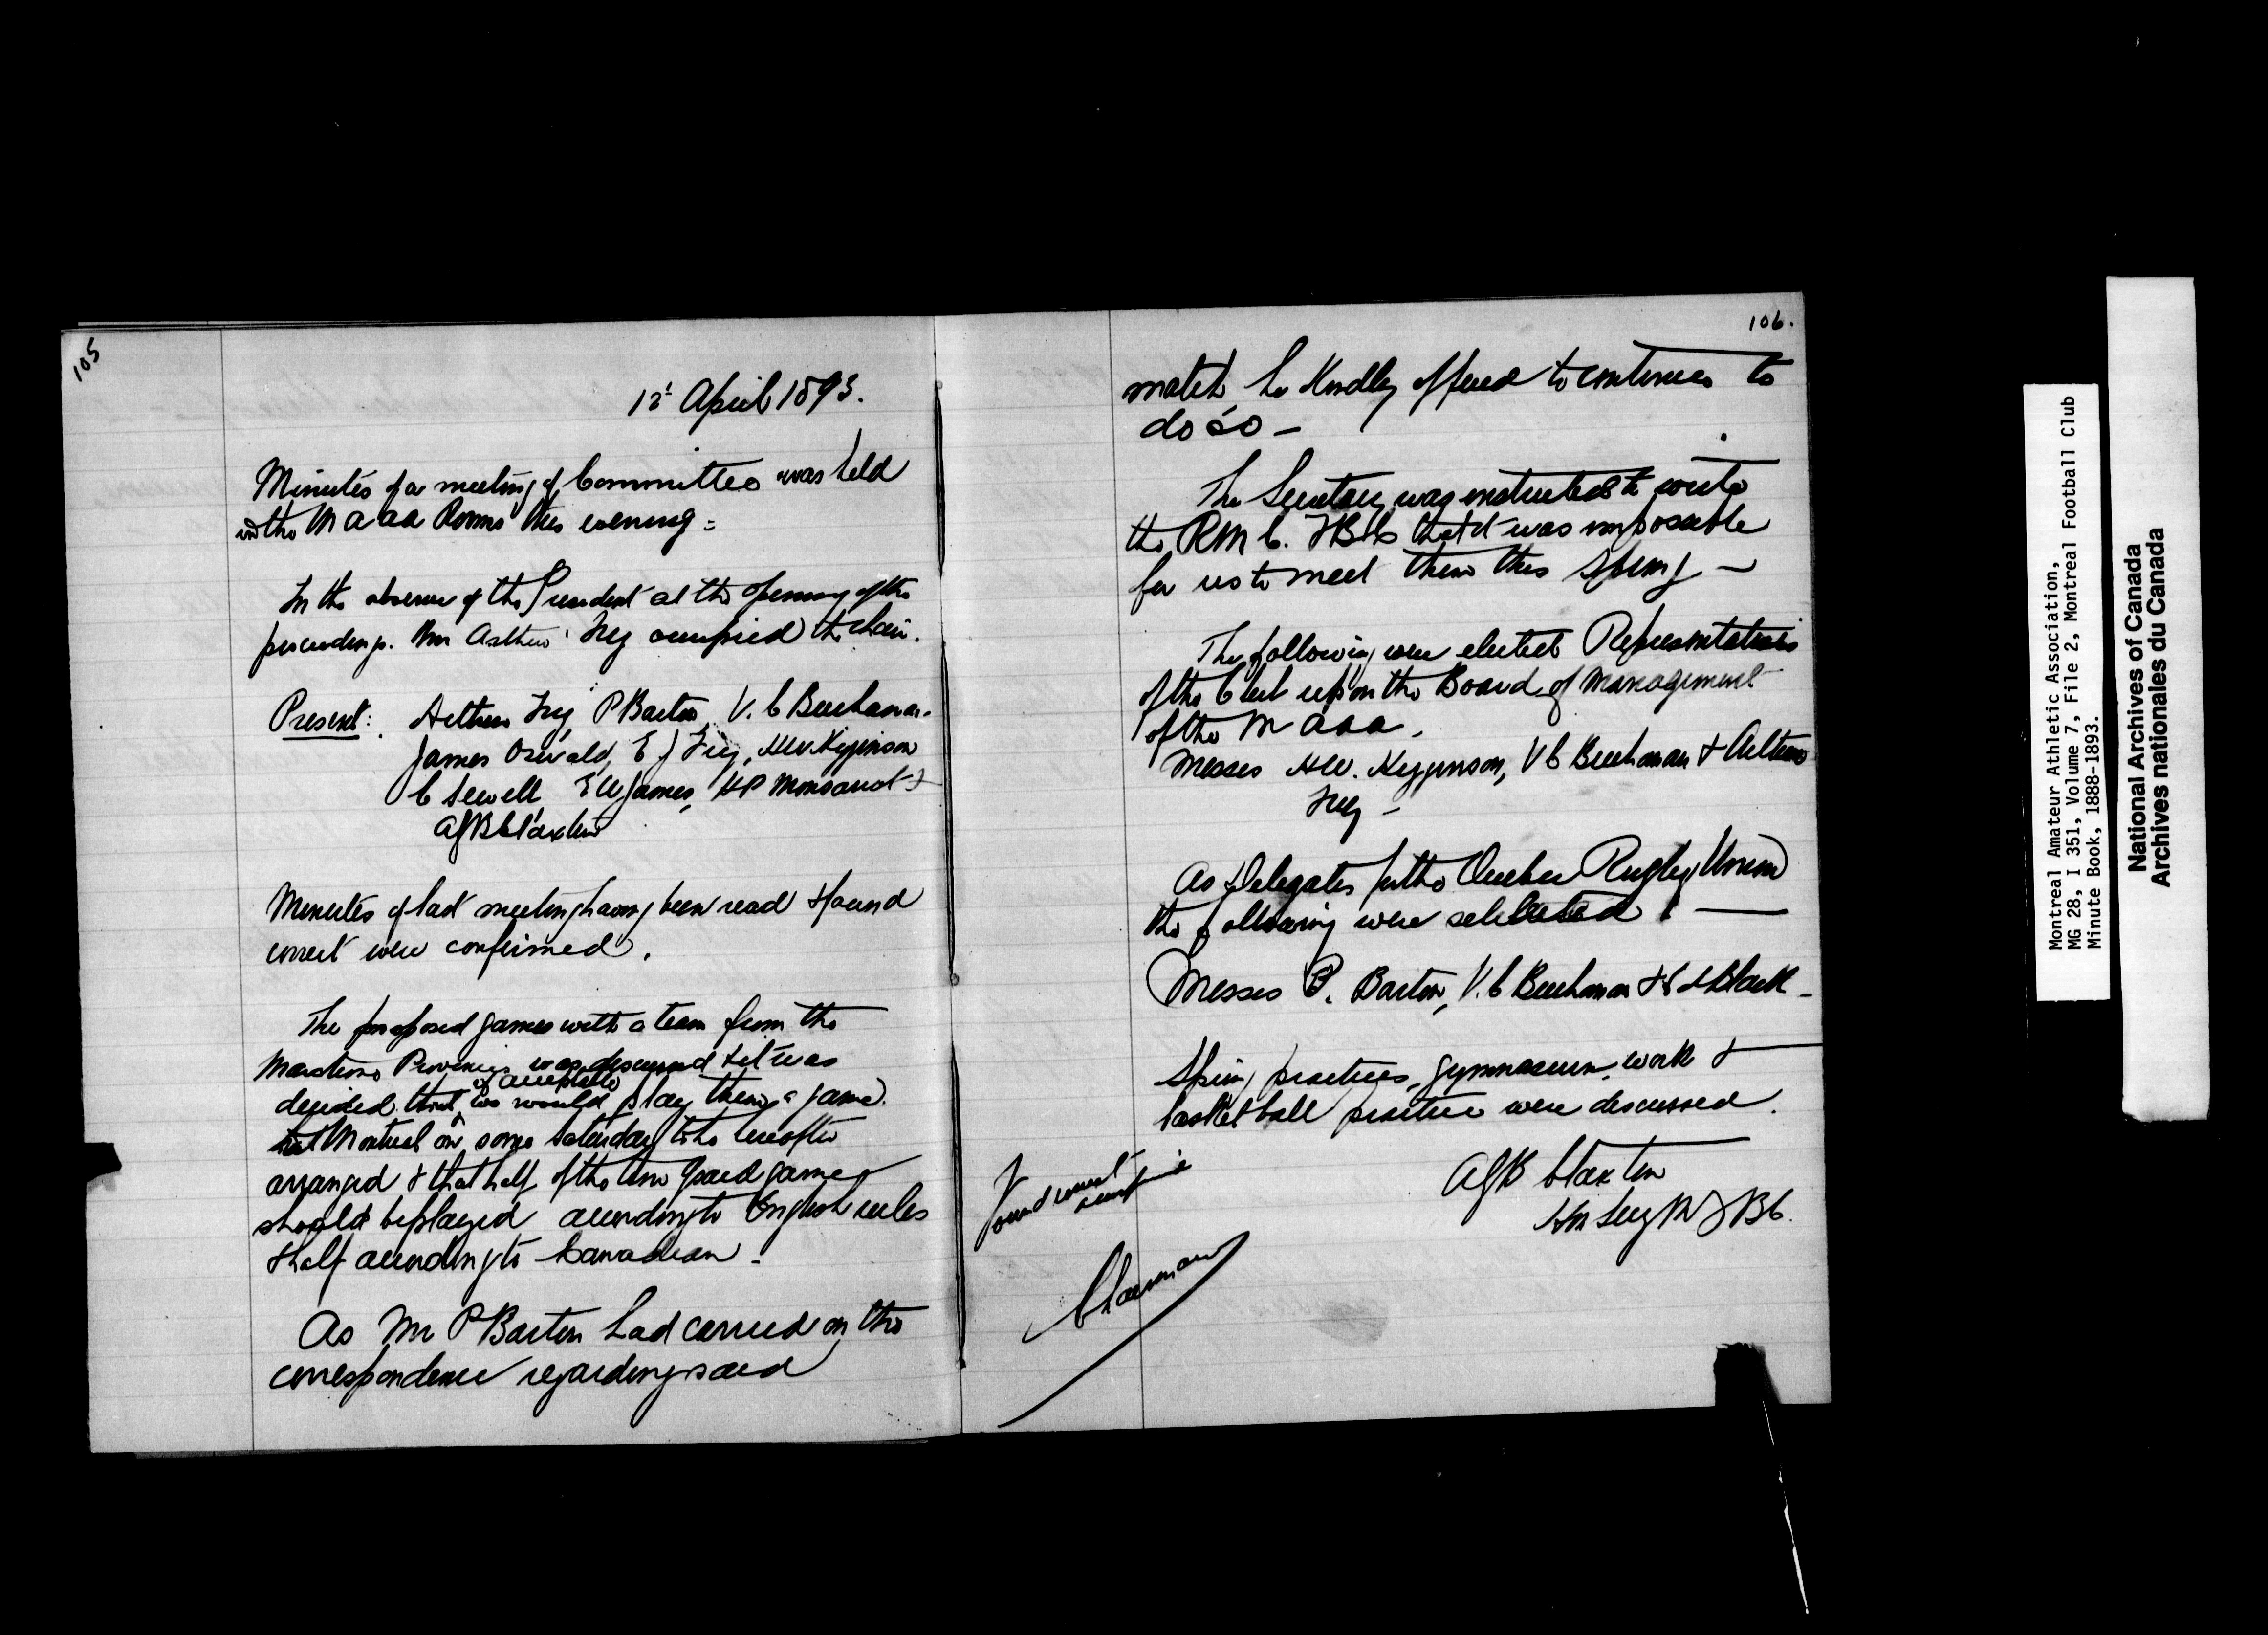 105
12' April 1893.
Minutes of a meeting of Committee was held
in the M a a a Rooms this evening -
In the absence of the President at the opening of the
proceedings. Mr Arthur Fry occupied the chair.
Present: Arthur Fry, P Barton, V. C Buchanan.
James Oswald, E J Fry, HW. Higginson
C Sewell, E W James, KP Monsarrat &
AGB Claxton
Minutes of last meeting having been read & found
correct were confirmed.
The proposed games with a team from the
Maritime Provinces was discussed & it was
decided that if acceptable we would play them a game
in Montreal on some Saturday to be hereafter
arranged & that half of the time said game
should be played according to English rules
& half according to Canadian -
As Mr P Barton had carried on the
correspondence regarding said
106.
match he Kindly offered to continue to
do so -
The Secretary was instructed to write
the RM C. FBC that it was impossible
for us to meet them this Spring -
The following were elected Representatives
of the Club upon the Board of Management
of the M a a a.
Messrs HW. Higginson, V C Buchanan & Arthur
Fry -
As Delegates for the Quebec Rugby Union
the following were selected : -
Messrs P. Barton, V. C Buchanan & Black -
Spring practices, gymnasium work &
basket ball practice were discussed.
AGB Claxton
Hn Secy M F B C.
Found correct
Chairman
Montreal Amateur Athletic Association,
MG 28, I 351, Volume 7, File 2, Montreal Football Club
Minute Book, 1888-1893.
National Archives of Canada
Archives nationales du Canada